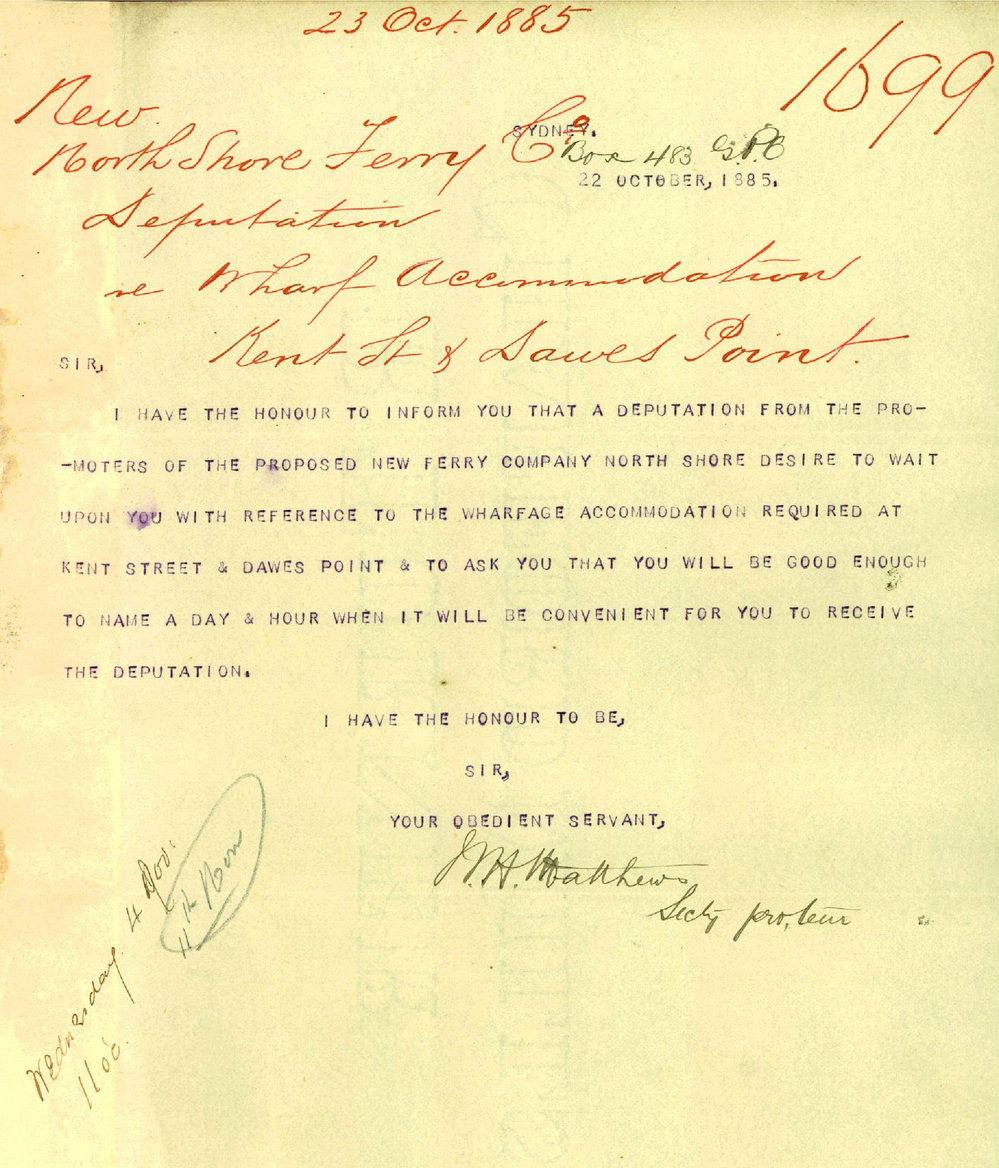 23 Oct. 1885
1699
New
North Shore Ferry Co
Deputation
re Wharf Accommodation
Kent St & Dawes Point.
SYDNEY.
Box 483 G.P.O
22 OCTOBER, 1885.
SIR,
I HAVE THE HONOUR TO INFORM YOU THAT A DEPUTATION FROM THE PRO-
-MOTERS OF THE PROPOSED NEW FERRY COMPANY NORTH SHORE DESIRE TO WAIT
UPON YOU WITH REFERENCE TO THE WHARFAGE ACCOMMODATION REQUIRED AT
KENT STREET & DAWES POINT & TO ASK YOU THAT YOU WILL BE GOOD ENOUGH
TO NAME A DAY & HOUR WHEN IT WILL BE CONVENIENT FOR YOU TO RECEIVE
THE DEPUTATION.
I HAVE THE HONOUR TO BE,
SIR,
YOUR OBEDIENT SERVANT,
W. H. Matthews
Secty pro, tem
Wednesday 4 Nov:
11 oc.
11th Nov